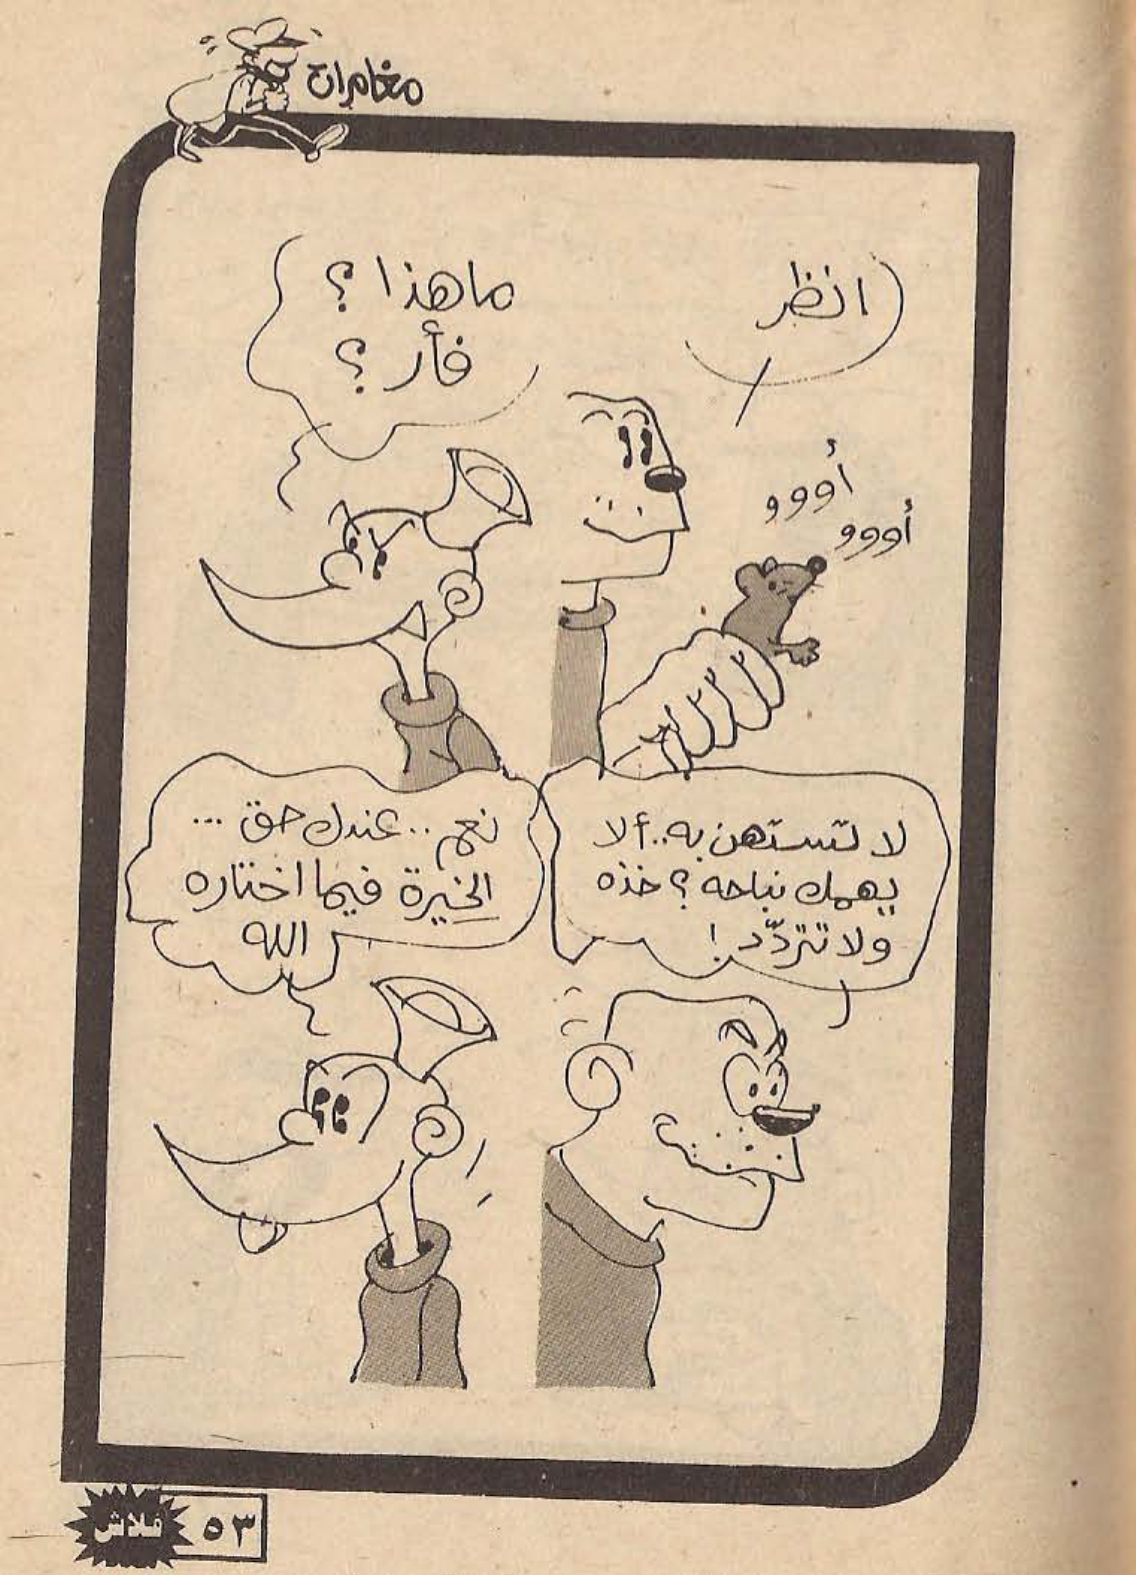 مغامرات
انظر
ما هذا ؟
فأر ؟
أووو
أووو
لا تستهن به.. ألا
يهمك نباحه ؟ خذه
ولا تتردّد !
نعم .. عندك حق ...
الخيرة فيما اختاره
الله
فلاش
٥٣